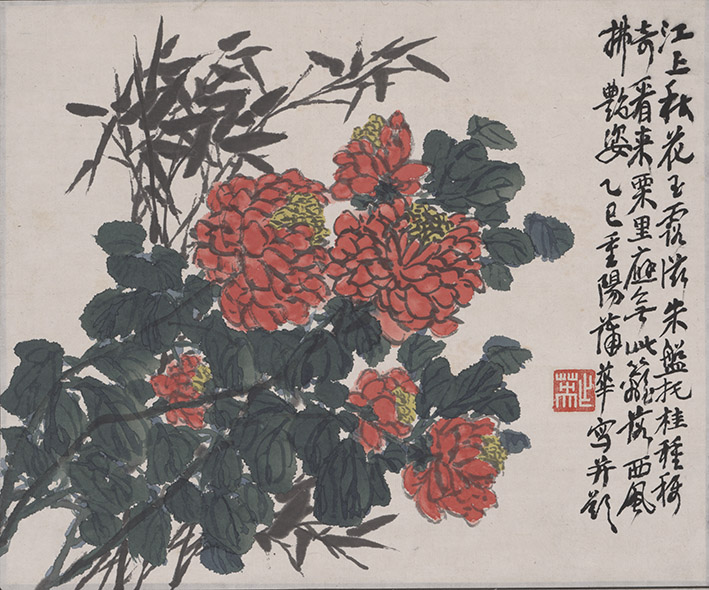 江上秋花玉露滋朱盤托桂種稱
奇看来栗里應無此籬落西風
拂艷姿乙巳重陽蒲華寫并題